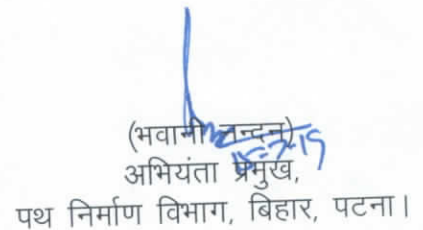 (भवानी नन्दन)
अभियंता प्रमुख,
पथ निर्माण विभाग, बिहार, पटना।